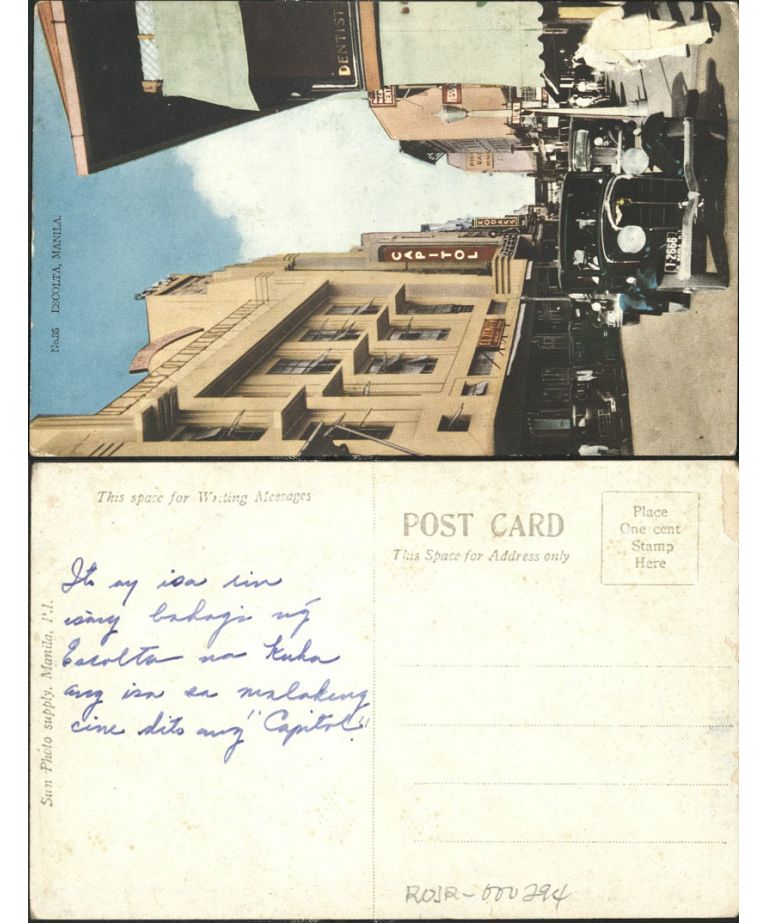 No.35 ESCOLTA, MANILA.
DENTIST
KODAKS
CAPITOL
1-2666
This space for Writing Messages
POST CARD
This Space for Address only
Place
One cent
Stamp
Here
Sun Photo supply, Manila, P.I.
Ito ay isa rin
isang bahagi ng
Escolta na kuha
ang isa sa malaking
cine dito ang "Capitol"
ROJR-000294